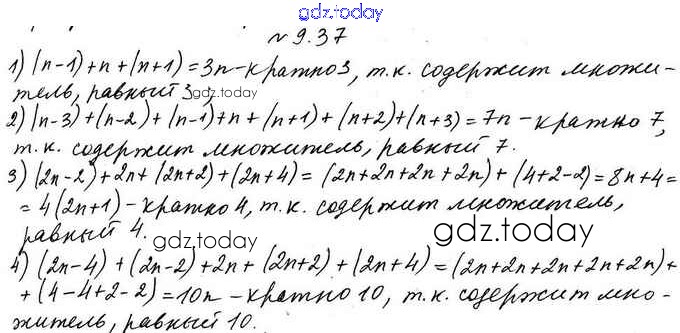 gdz.today
№9.37
1) (n-1)+n+(n+1)=3n-кратно3, т.к. содержит множи-
тель, равный 3,
gdz.today
2) (n-3)+(n-2)+(n-1)+n+(n+1)+(n+2)+(n+3)=7n-кратно 7,
т.к. содержит множитель, равный 7.
3) (2n-2)+2n+(2n+2)+(2n+4)=(2n+2n+2n+2n)+(4+2-2)=8n+4=
=4(2n+1)-кратно 4, т.к. содержит множитель,
равный 4.
gdz.today
gdz.today
4) (2n-4)+(2n-2)+2n+(2n+2)+(2n+4)=(2n+2n+2n+2n+2n)+
+(4-4+2-2)=10n-кратно 10, т.к. содержит мно-
житель, равный 10.